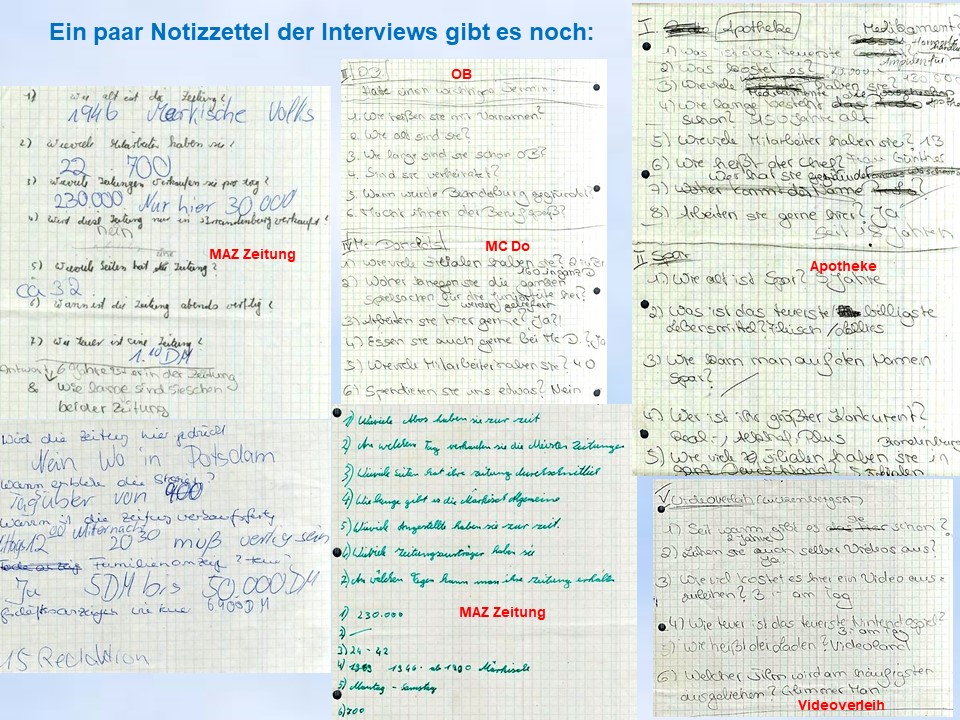 Ein paar Notizzettel der Interviews gibt es noch:
1) Wie alt ist die Zeitung?
1946 Märkische Volks
2) Wieviele Mitarbeiter haben sie?
22 700
3) Wieviele Zeitungen verkaufen sie pro Tag?
230.000 Nur hier 30.000
4) Wird diese Zeitung nur in Brandenburg verkauft?
nein
MAZ Zeitung
5) Wieviele Seiten hat die Zeitung?
ca 32
6) Wann ist die Zeitung abends fertig?
7) Wie teuer ist eine Zeitung?
1.10 DM
Antwort 6 Jahre ist er in der Zeitung
8 Wie lange sind sie schon
bei der Zeitung
Wird die Zeitung hier gedruckt
Nein Wo in Potsdam
Wann
Tagüber von 900
Wann ist die Zeitung verkaufsfertig
12 00 Mitternacht
2030 muß vertig sein
Familienanzeige
Ja 5DM bis 50.000DM
6900DM
15 Redaktion
OB
Habe einen wichtigen Termin.
1. Wie heißen sie mit Vornamen?
2. Wie alt sind sie?
3. Wie lange sind sie schon OB?
4. Sind sie verheiratet?
5. Wann wurde Brandenburg gegründet?
6. Macht ihnen der Beruf
MC Do
IV Mc Donalds
1) Wieviele Filialen haben sie? 2 in Br.
2) Woher kriegen sie die ganzen
Spielsachen für die Juniortüte her?
werden geliefert
3) Arbeiten sie hier gerne? Ja!
4) Essen sie auch gerne bei Mc D.? Ja
5) Wieviele Mitarbeiter haben sie? 40
6) Spendieren sie uns etwas? Nein
1) Wieviele Abos haben sie zur zeit
2) An welchen Tag verkaufen sie die Meisten Zeitungen
3) Wieviele Seiten hat ihre zeitung durchschnittlich
4) Wie lange gibt es die Märkisch Algemeine
5) Wieviel Angestellte haben sie zur zeit.
6) Wieviele zeitungsausträger haben sie
7) An welchen Tagen kann man ihre zeitung erhalten
MAZ Zeitung
1) 230.000
2) —
3) 24 - 42
4) 1946 - ab 1990 Märkische
5) Montag - Samstag
6) 700
I. Apotheke
1) Was ist das teuerste Medikament?
2) Was kostet es?
3) Wieviele Medikamente haben sie?
4) Wie lange besteht die Apotheke
schon? 450 Jahre alt
5) Wieviele Mitarbeiter haben sie? 13
6) Wie heißt der Chef? Frau Günther
7) Wer hat sie gegründet
8) Arbeiten sie gerne hier? Ja
Seit 15 Jahren
Apotheke
II Spar
1.) Wie alt ist Spar? 5 Jahre
2) Was ist das teuerste / billigste
Lebensmittel? Fleisch / Lollies
3) Wie kam man auf den Namen
Spar?
4.) Wer ist ihr größter Konkurent?
Real-, Aldi, Plus
5) Wie viele Filialen haben sie in
ganz Deutschland?
V. Videoverleih
1) Seit wann gibt es sie schon?
2 Jahre
2) Leihen sie auch selber Videos aus?
ja
3) Wie viel kostet es hier ein Video aus-
zuleihen? 3.- am Tag
4) Wie teuer ist das teuerste Nintendospiel?
3.- am Tag
5) Wie heißt der Laden? Videoland
6) Welcher Film wird am häufigsten
ausgeliehen? Glimmer Man
Videoverleih